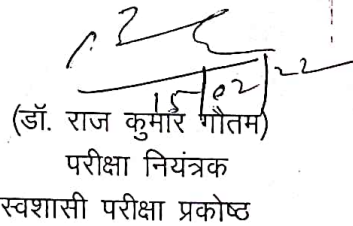 15/02/22
(डॉ. राज कुमार गौतम)
परीक्षा नियंत्रक
स्वशासी परीक्षा प्रकोष्ठ